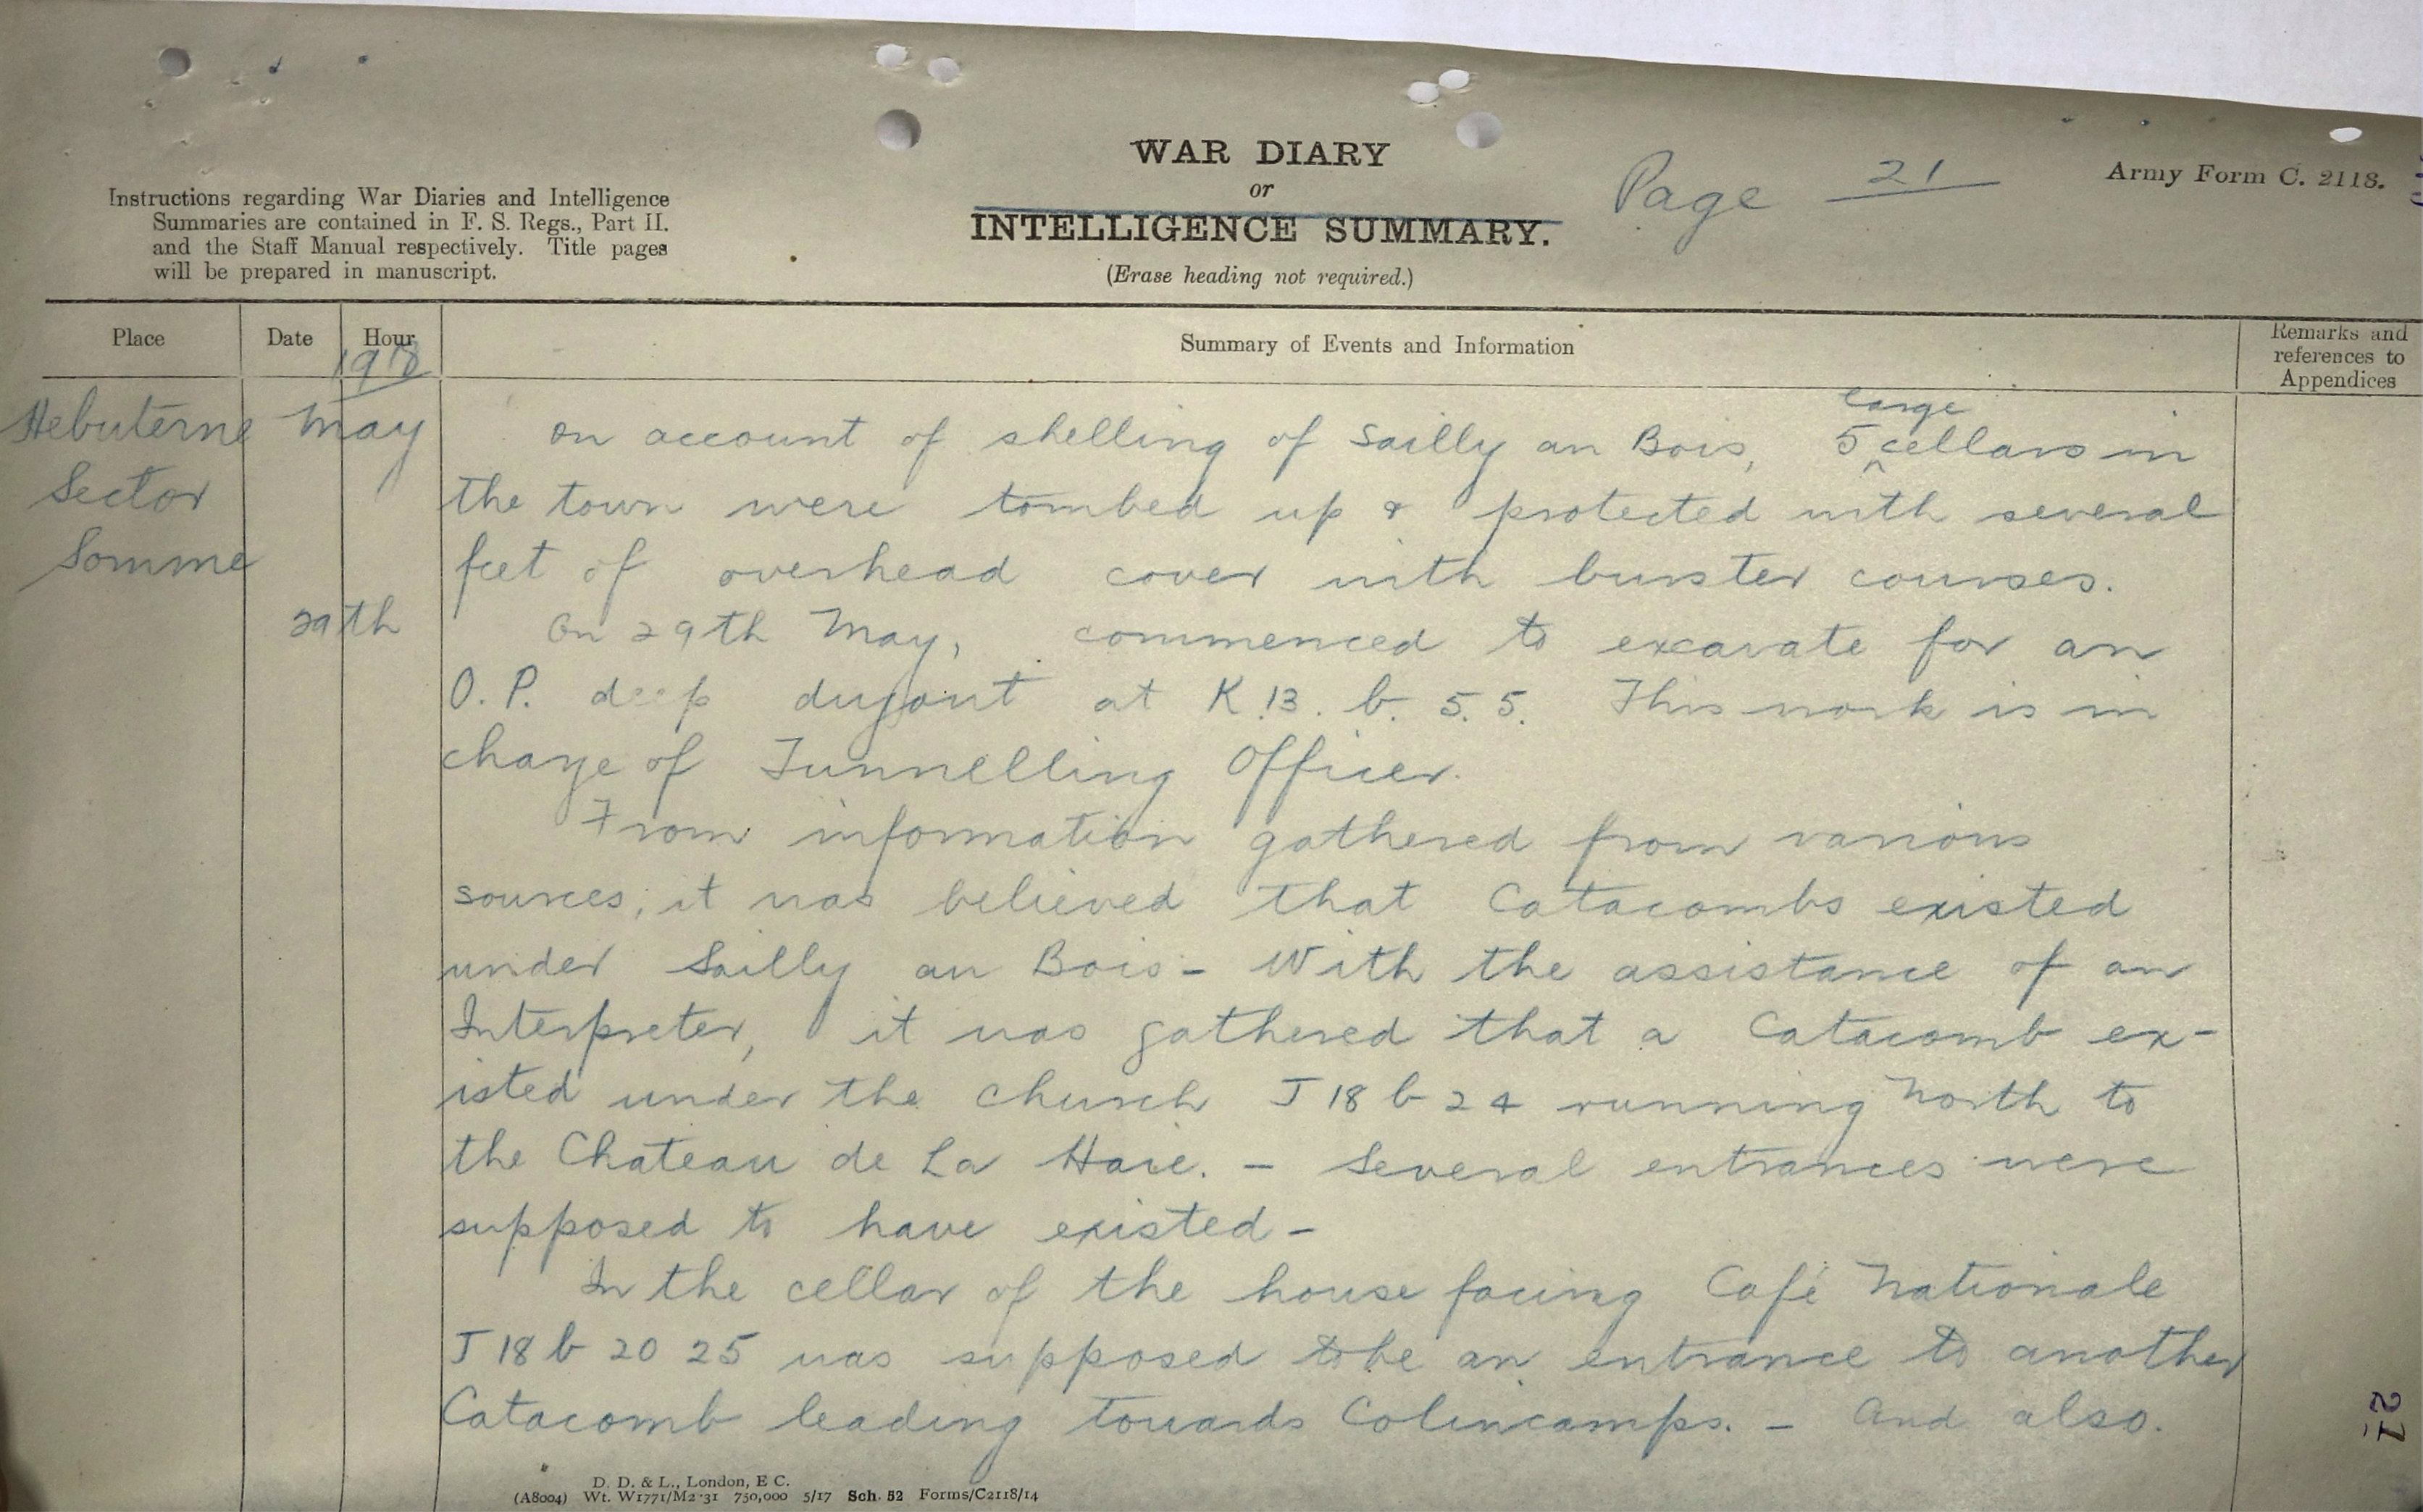 WAR DIARY
or
INTELLIGENCE SUMMARY.
(Erase heading not required.)
Page 21
Army Form C. 2118.
Instructions regarding War Diaries and Intelligence
Summaries are contained in F. S. Regs., Part II.
and the Staff Manual respectively. Title pages
will be prepared in manuscript.
Place Date Hour Summary of Events and Information Remarks and references to Appendices
1918
Hebuterne May
Sector
Somme
29th
large
On account of shelling of Sailly au Bois, 5 ^ cellars in
the town were tombed up & protected with several
feet of overhead cover with burster courses.
On 29th May, commenced to excavate for an
O.P. deep dugout at K.13. b. 5.5. This work is in
charge of Tunnelling Officer.
From information gathered from various
sources, it was believed that Catacombs existed
under Sailly au Bois - With the assistance of an
Interpreter, it was gathered that a Catacomb ex-
isted under the church J 18 b 24 running North to
the Chateau de La Haie. - Several entrances were
supposed to have existed -
In the cellar of the house facing Café Nationale
J 18 b 20 25 was supposed to be an entrance to another
Catacomb leading towards Colincamps. - And also.
21
D. D. & L., London, E C.
(A8004) Wt. W1771/M2·31 750,000 5/17 Sch. 52 Forms/C2118/14